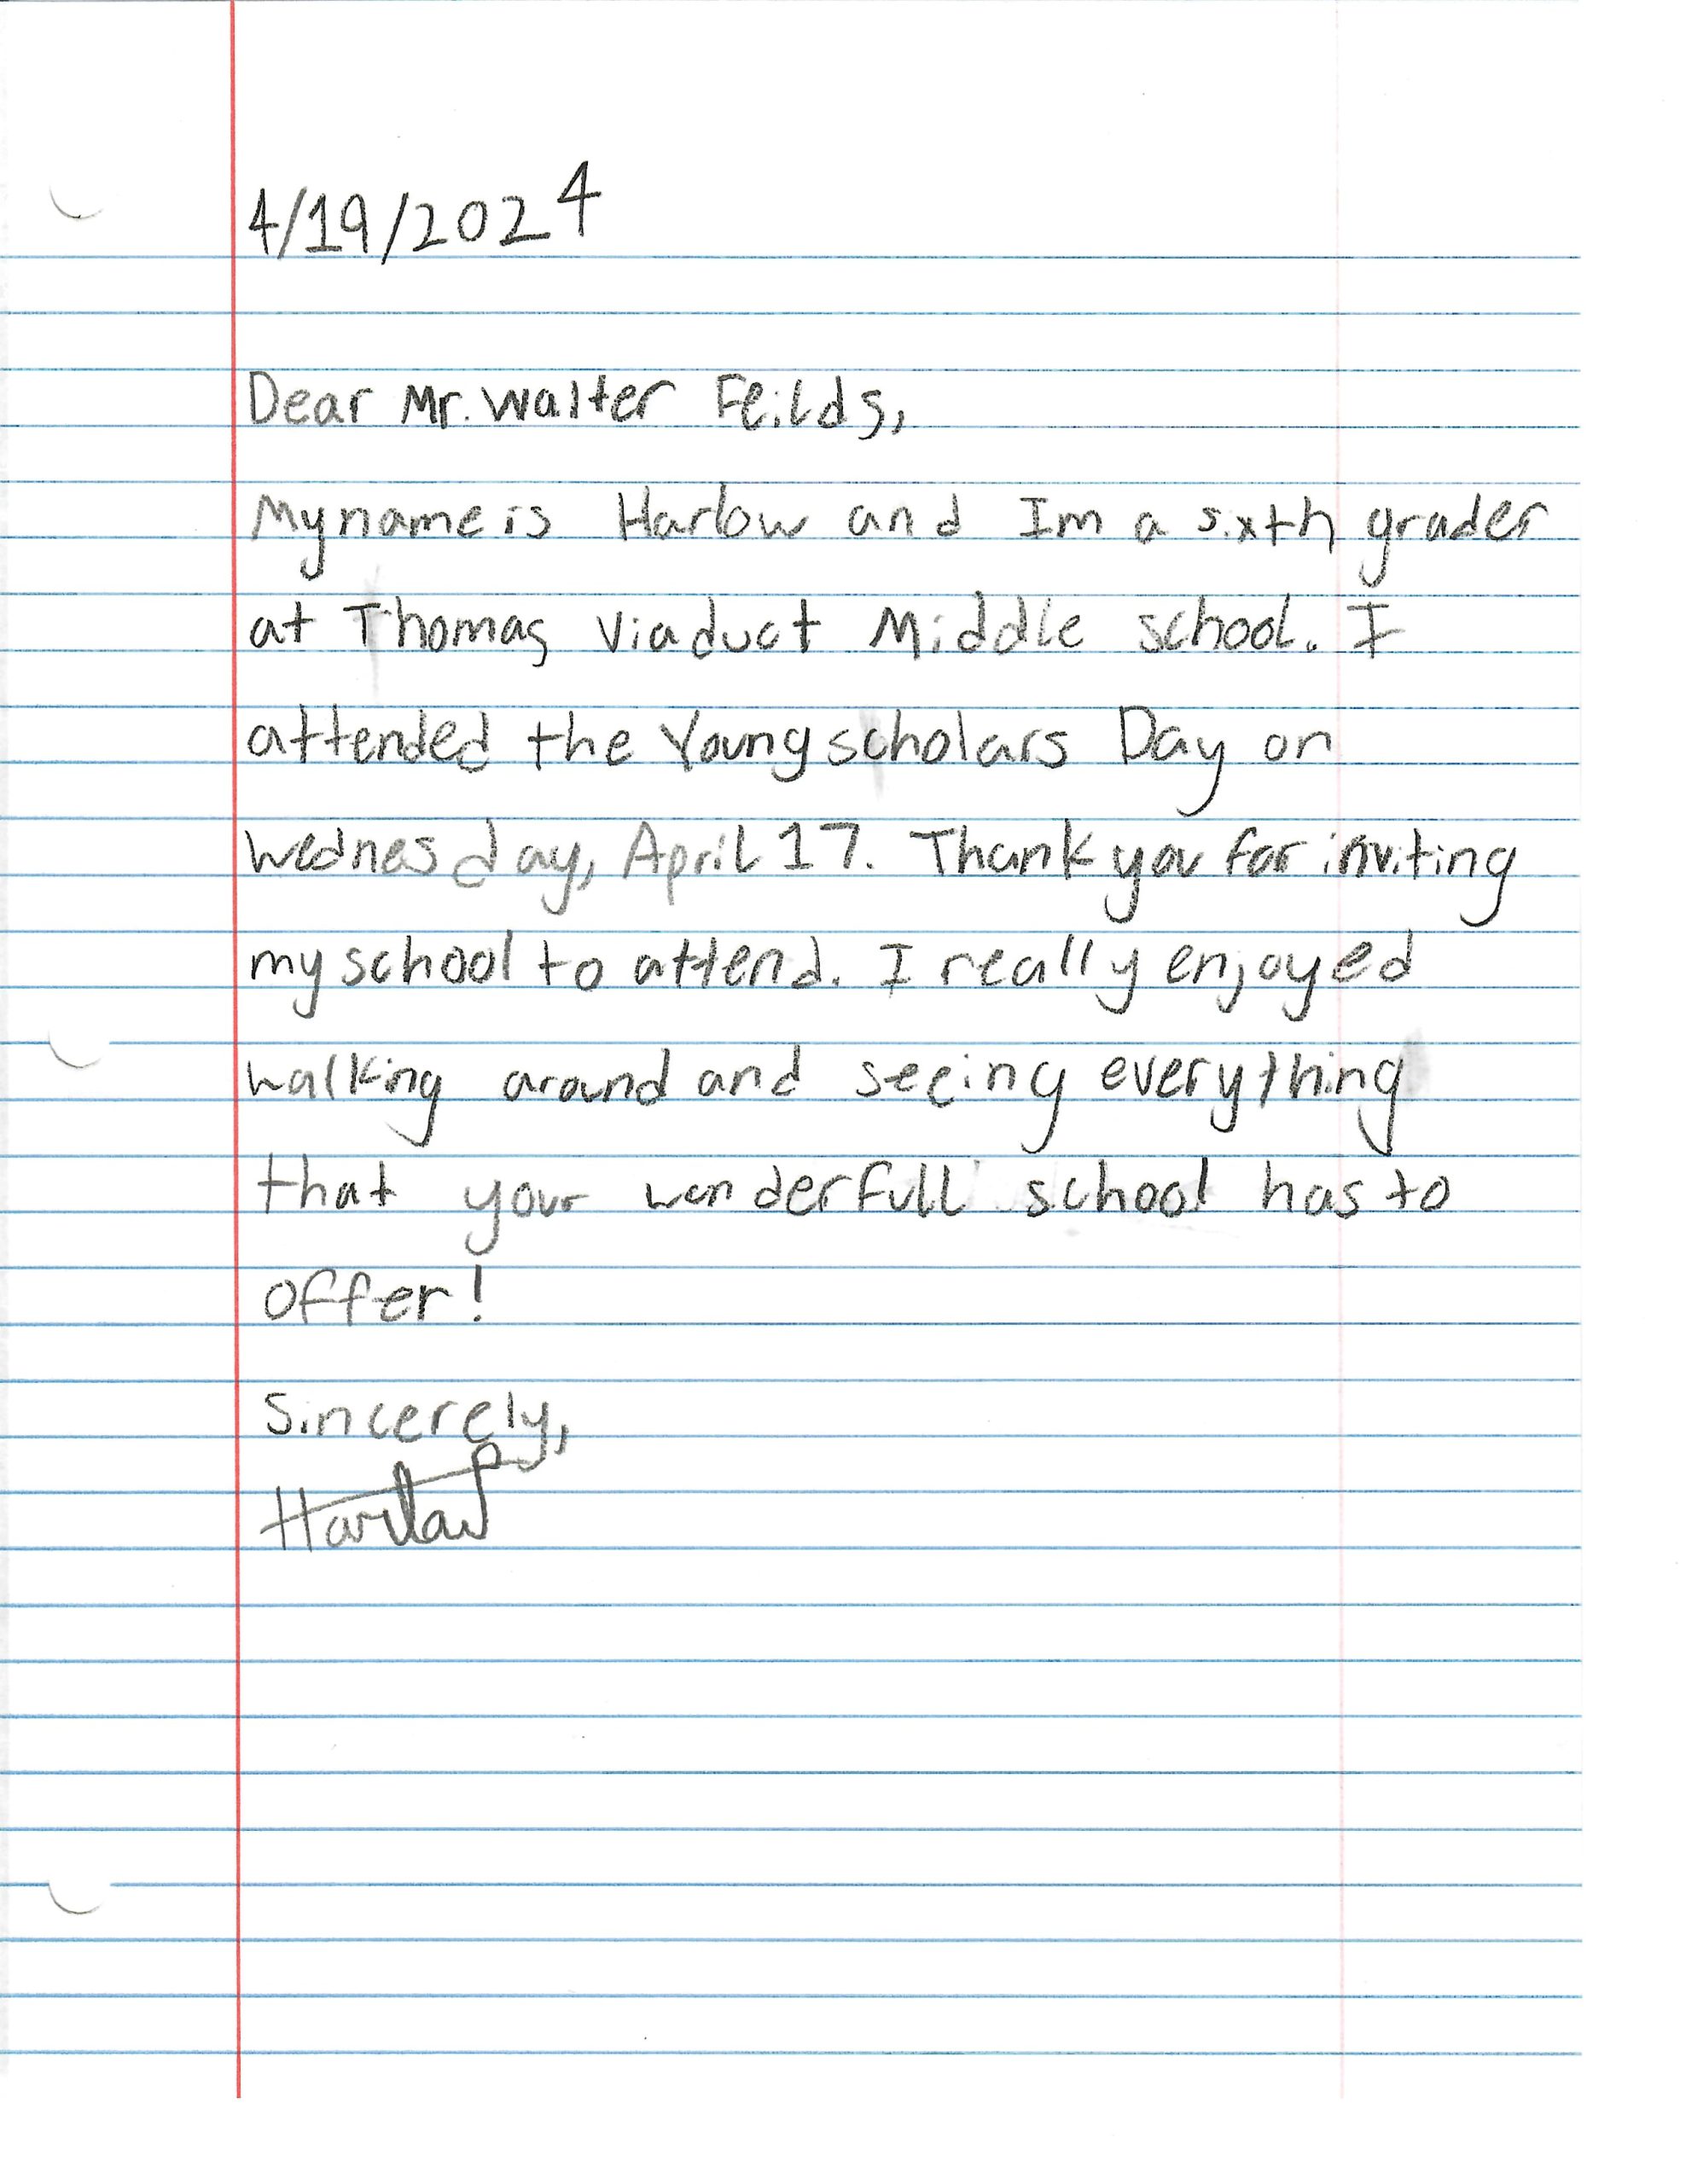 4/19/2024
Dear Mr. Walter Feilds,
My name is Harlow and Im a sixth grader
at Thomas Viaduct Middle school. I
attended the Young scholars Day on
Wednesday, April 17. Thank you for inviting
my school to attend. I really enjoyed
walking around and seeing everything
that your wonderfull school has to
offer!
Sincerely,
Harlow